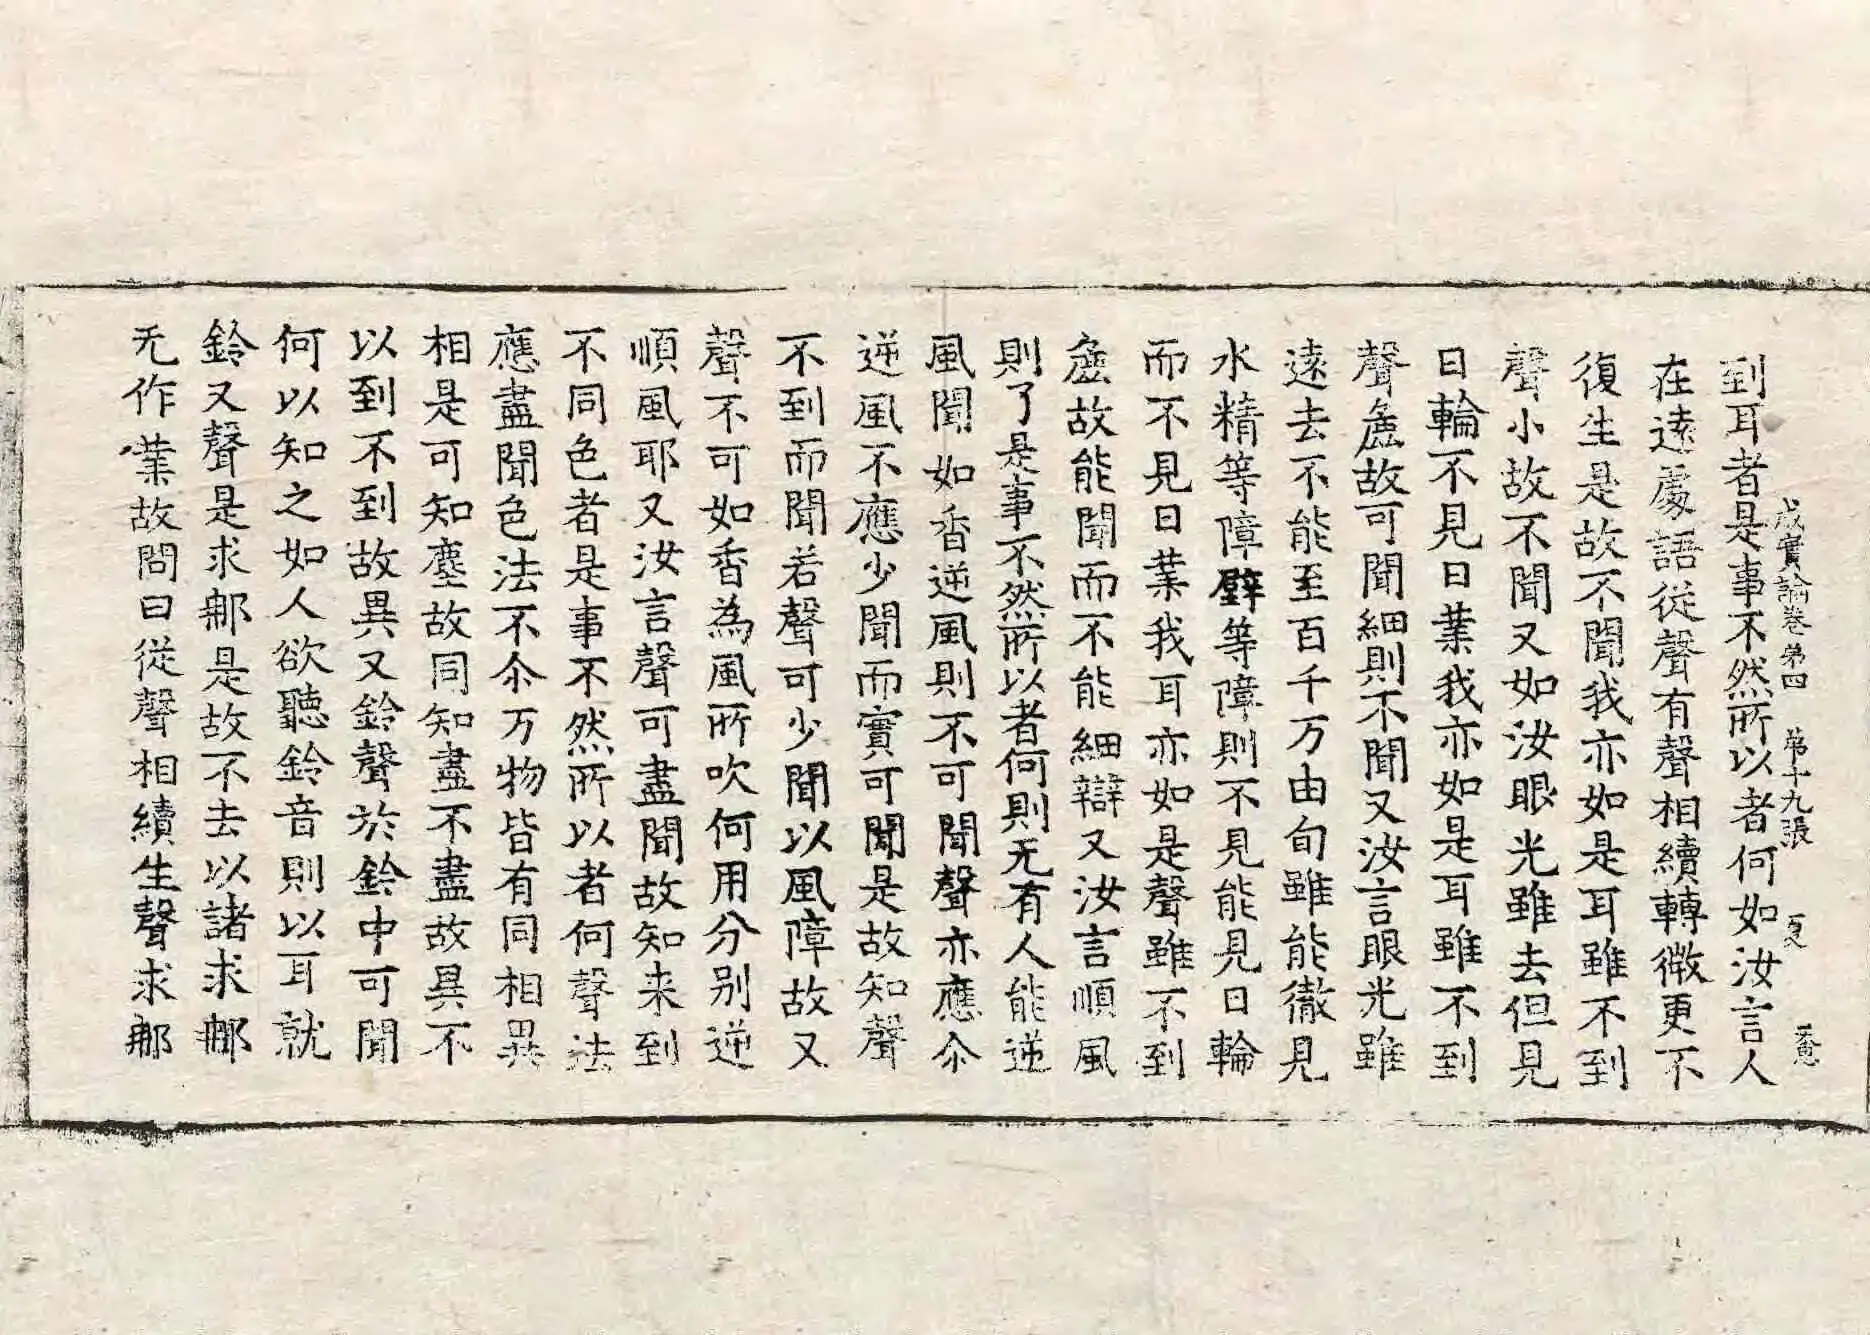 成實論卷第四 第十九張 夏
到耳者是事不然所以者何如汝言人
在遠處語從聲有聲相續轉微更不
復生是故不聞我亦如是耳雖不到
聲小故不聞又如汝眼光雖去但見
日輪不見日業我亦如是耳雖不到
聲麁故可聞細則不聞又汝言眼光雖
遠去不能至百千万由旬雖能徹見
水精等障壁等障則不見能見日輪
而不見日業我耳亦如是聲雖不到
麁故能聞而不能細辯又汝言順風
則了是事不然所以者何則无有人能逆
風聞如香逆風則不可聞聲亦應尒
逆風不應少聞而實可聞是故知聲
不到而聞若聲可少聞以風障故又
聲不可如香為風所吹何用分別逆
順風耶又汝言聲可盡聞故知来到
不同色者是事不然所以者何聲法
應盡聞色法不尒万物皆有同相異
相是可知塵故同知盡不盡故異不
以到不到故異又鈴聲於鈴中可聞
何以知之如人欲聽鈴音則以耳就
鈴又聲是求郍是故不去以諸求郍
无作業故問曰從聲相續生聲求郍